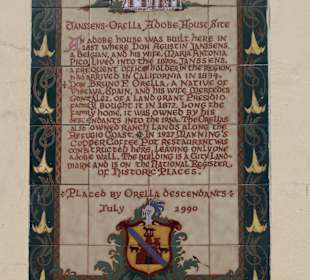 Janssens-Orella Adobe House Site
An adobe house was built here in
1857 where Don Agustin Janssens,
a Belgian, and his wife, Maria Antonia
Pico, lived into the 1870s. Janssens,
a frequent office holder in the region,
had arrived in California in 1834.
Don Bruno F. Orella, a native of
Vizcaya, Spain, and his wife, Mercedes
Gonzalez, of a land grant Presidio
family bought it in 1872. Long the
family home, it was owned by his
descendants into the 1980s. The Orellas
also owned ranch lands along the
Refugio Coast. In 1927 Manning's
Copper Coffee Pot Restaurant was
constructed here, leaving only one
adobe wall. The building is a City Land-
mark and is on the National Register
of Historic Places.
Placed by Orella descendants
July 1990